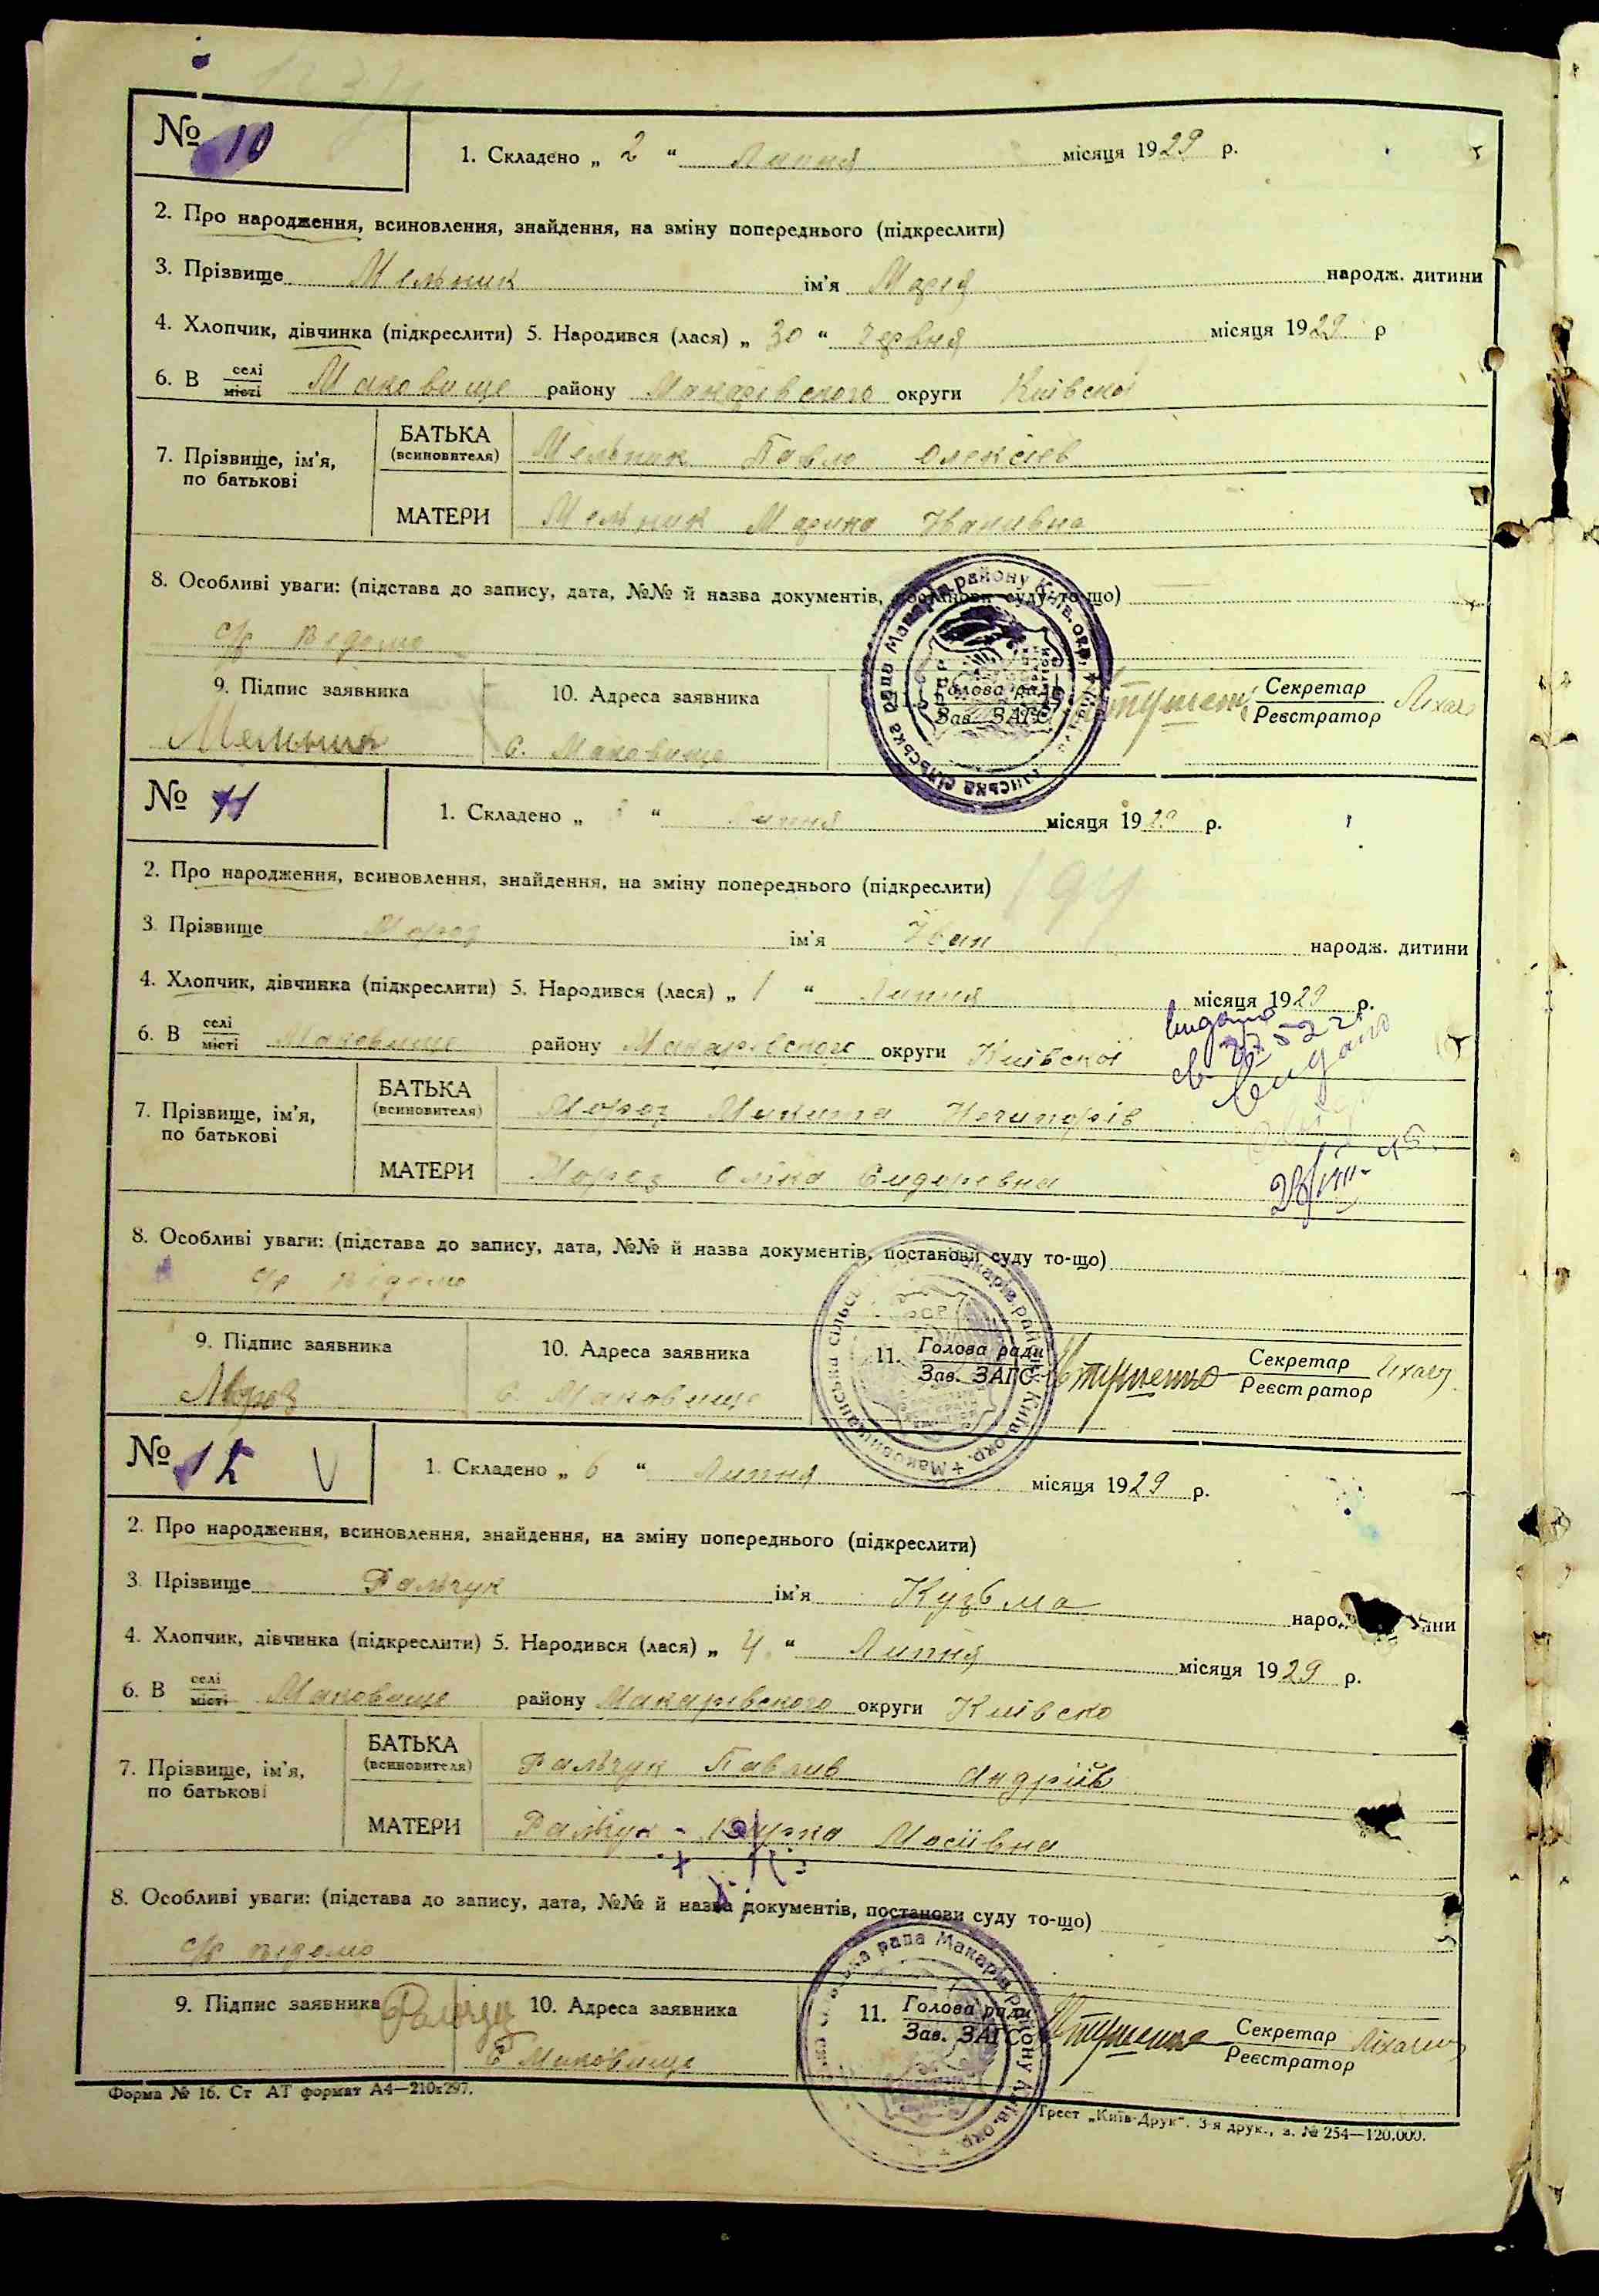 № 10
1. Складено „ 2 “ Липня місяця 1929 р.
2. Про народження, всиновлення, знайдення, на зміну попереднього (підкреслити)
3. Прізвище Мельник ім'я Марія народж. дитини
4. Хлопчик, дівчинка (підкреслити) 5. Народився (лася) „ 30 “ червня місяця 1929 р
6. В селі місті Маковище району Макарівского округи Київскої
7. Прізвище, ім'я, по батькові
БАТЬКА (всиновителя) Мельник Павло Олексіев
МАТЕРИ Мельник Марина Іванивна
8. Особливі уваги: (підстава до запису, дата, №№ й назва документів, постанови суду то-що)
с/р відомо
9. Підпис заявника 10. Адреса заявника Голова ради Зав. ЗАГС Секретар Реєстратор
Мельник с. Маковище
№ 11
1. Складено „ “ Липня місяця 1929 р.
2. Про народження, всиновлення, знайдення, на зміну попереднього (підкреслити)
3. Прізвище Мороз ім'я Іван народж. дитини
4. Хлопчик, дівчинка (підкреслити) 5. Народився (лася) „ 1 “ Липня місяця 1929 р.
6. В селі місті Маковище району Макарівского округи Київскої
7. Прізвище, ім'я, по батькові
БАТЬКА (всиновителя) Мороз Микита Нечипорів
МАТЕРИ Мороз Сидоревна
8. Особливі уваги: (підстава до запису, дата, №№ й назва документів, постанови суду то-що)
с/р відомо
9. Підпис заявника 10. Адреса заявника 11. Голова ради Зав. ЗАГС Секретар Реєстратор
Мороз с. Маковище
№ 12
1. Складено „ 6 “ Липня місяця 1929 р.
2. Про народження, всиновлення, знайдення, на зміну попереднього (підкреслити)
3. Прізвище Ральчук ім'я Кузьма
4. Хлопчик, дівчинка (підкреслити) 5. Народився (лася) „ 4 “ Липня місяця 1929 р.
6. В селі місті Маковище району Макарівского округи Київско
7. Прізвище, ім'я, по батькові
БАТЬКА (всиновителя) Ральчук Павлив Андріїв
МАТЕРИ Ральчук Мосіївна
8. Особливі уваги: (підстава до запису, дата, №№ й назва документів, постанови суду то-що)
с/р відомо
9. Підпис заявника 10. Адреса заявника 11. Голова ради Зав. ЗАГС Секретар Реєстратор
с Маковище
Форма № 16. Ст АТ формат А4—210х297.
Трест „Київ-Друк“. 3-я друк., з. № 254—120.000.